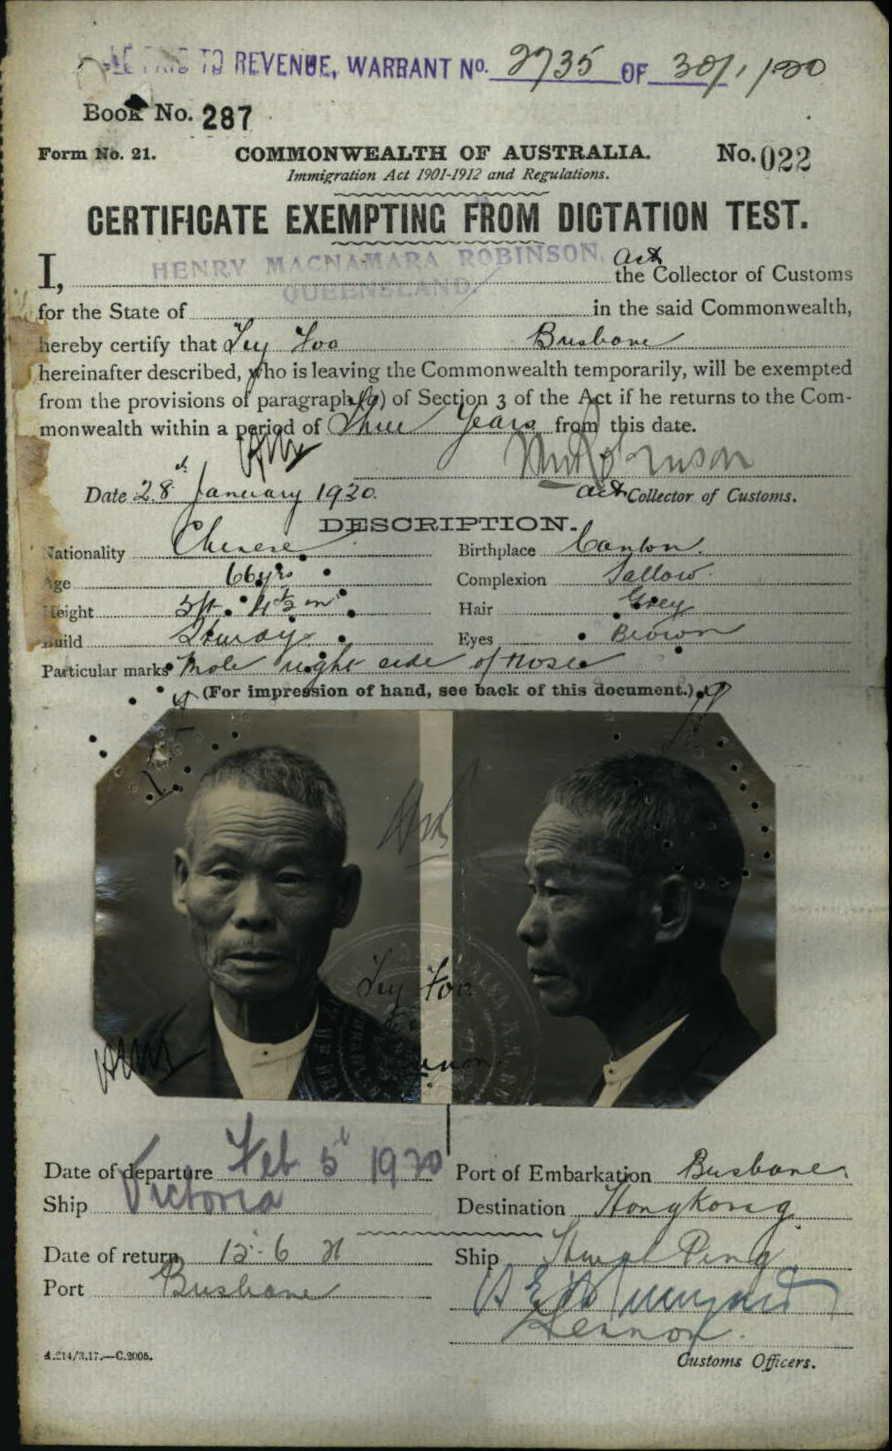 TO REVENUE, WARRANT No. 2735 OF 30/1/20
Book No. 287
Form No. 21. COMMONWEALTH OF AUSTRALIA. No. 022
Immigration Act 1901-1912 and Regulations.
CERTIFICATE EXEMPTING FROM DICTATION TEST.
I, HENRY MACNAMARA ROBINSON, Act the Collector of Customs
for the State of QUEENSLAND. in the said Commonwealth,
hereby certify that Foo Brisbane
hereinafter described, who is leaving the Commonwealth temporarily, will be exempted
from the provisions of paragraph (a) of Section 3 of the Act if he returns to the Com-
monwealth within a period of Three Years from this date.
HMR
HMRobinson
Date 28th January 1920. Act Collector of Customs.
DESCRIPTION.
Nationality Chinese Birthplace Canton.
Age 66 yrs Complexion Sallow.
Height 5ft. 4½ in Hair Grey
Build Sturdy Eyes Brown
Particular marks Mole right side of nose
(For impression of hand, see back of this document.)
Foo
HMR
Date of departure Feb 5th 1920 Port of Embarkation Brisbane
Ship Victoria Destination Hongkong
Date of return 12-6-21 Ship Hwah Ping
Port Brisbane
Lennon.
A.214/3.17.—C.2005. Customs Officers.